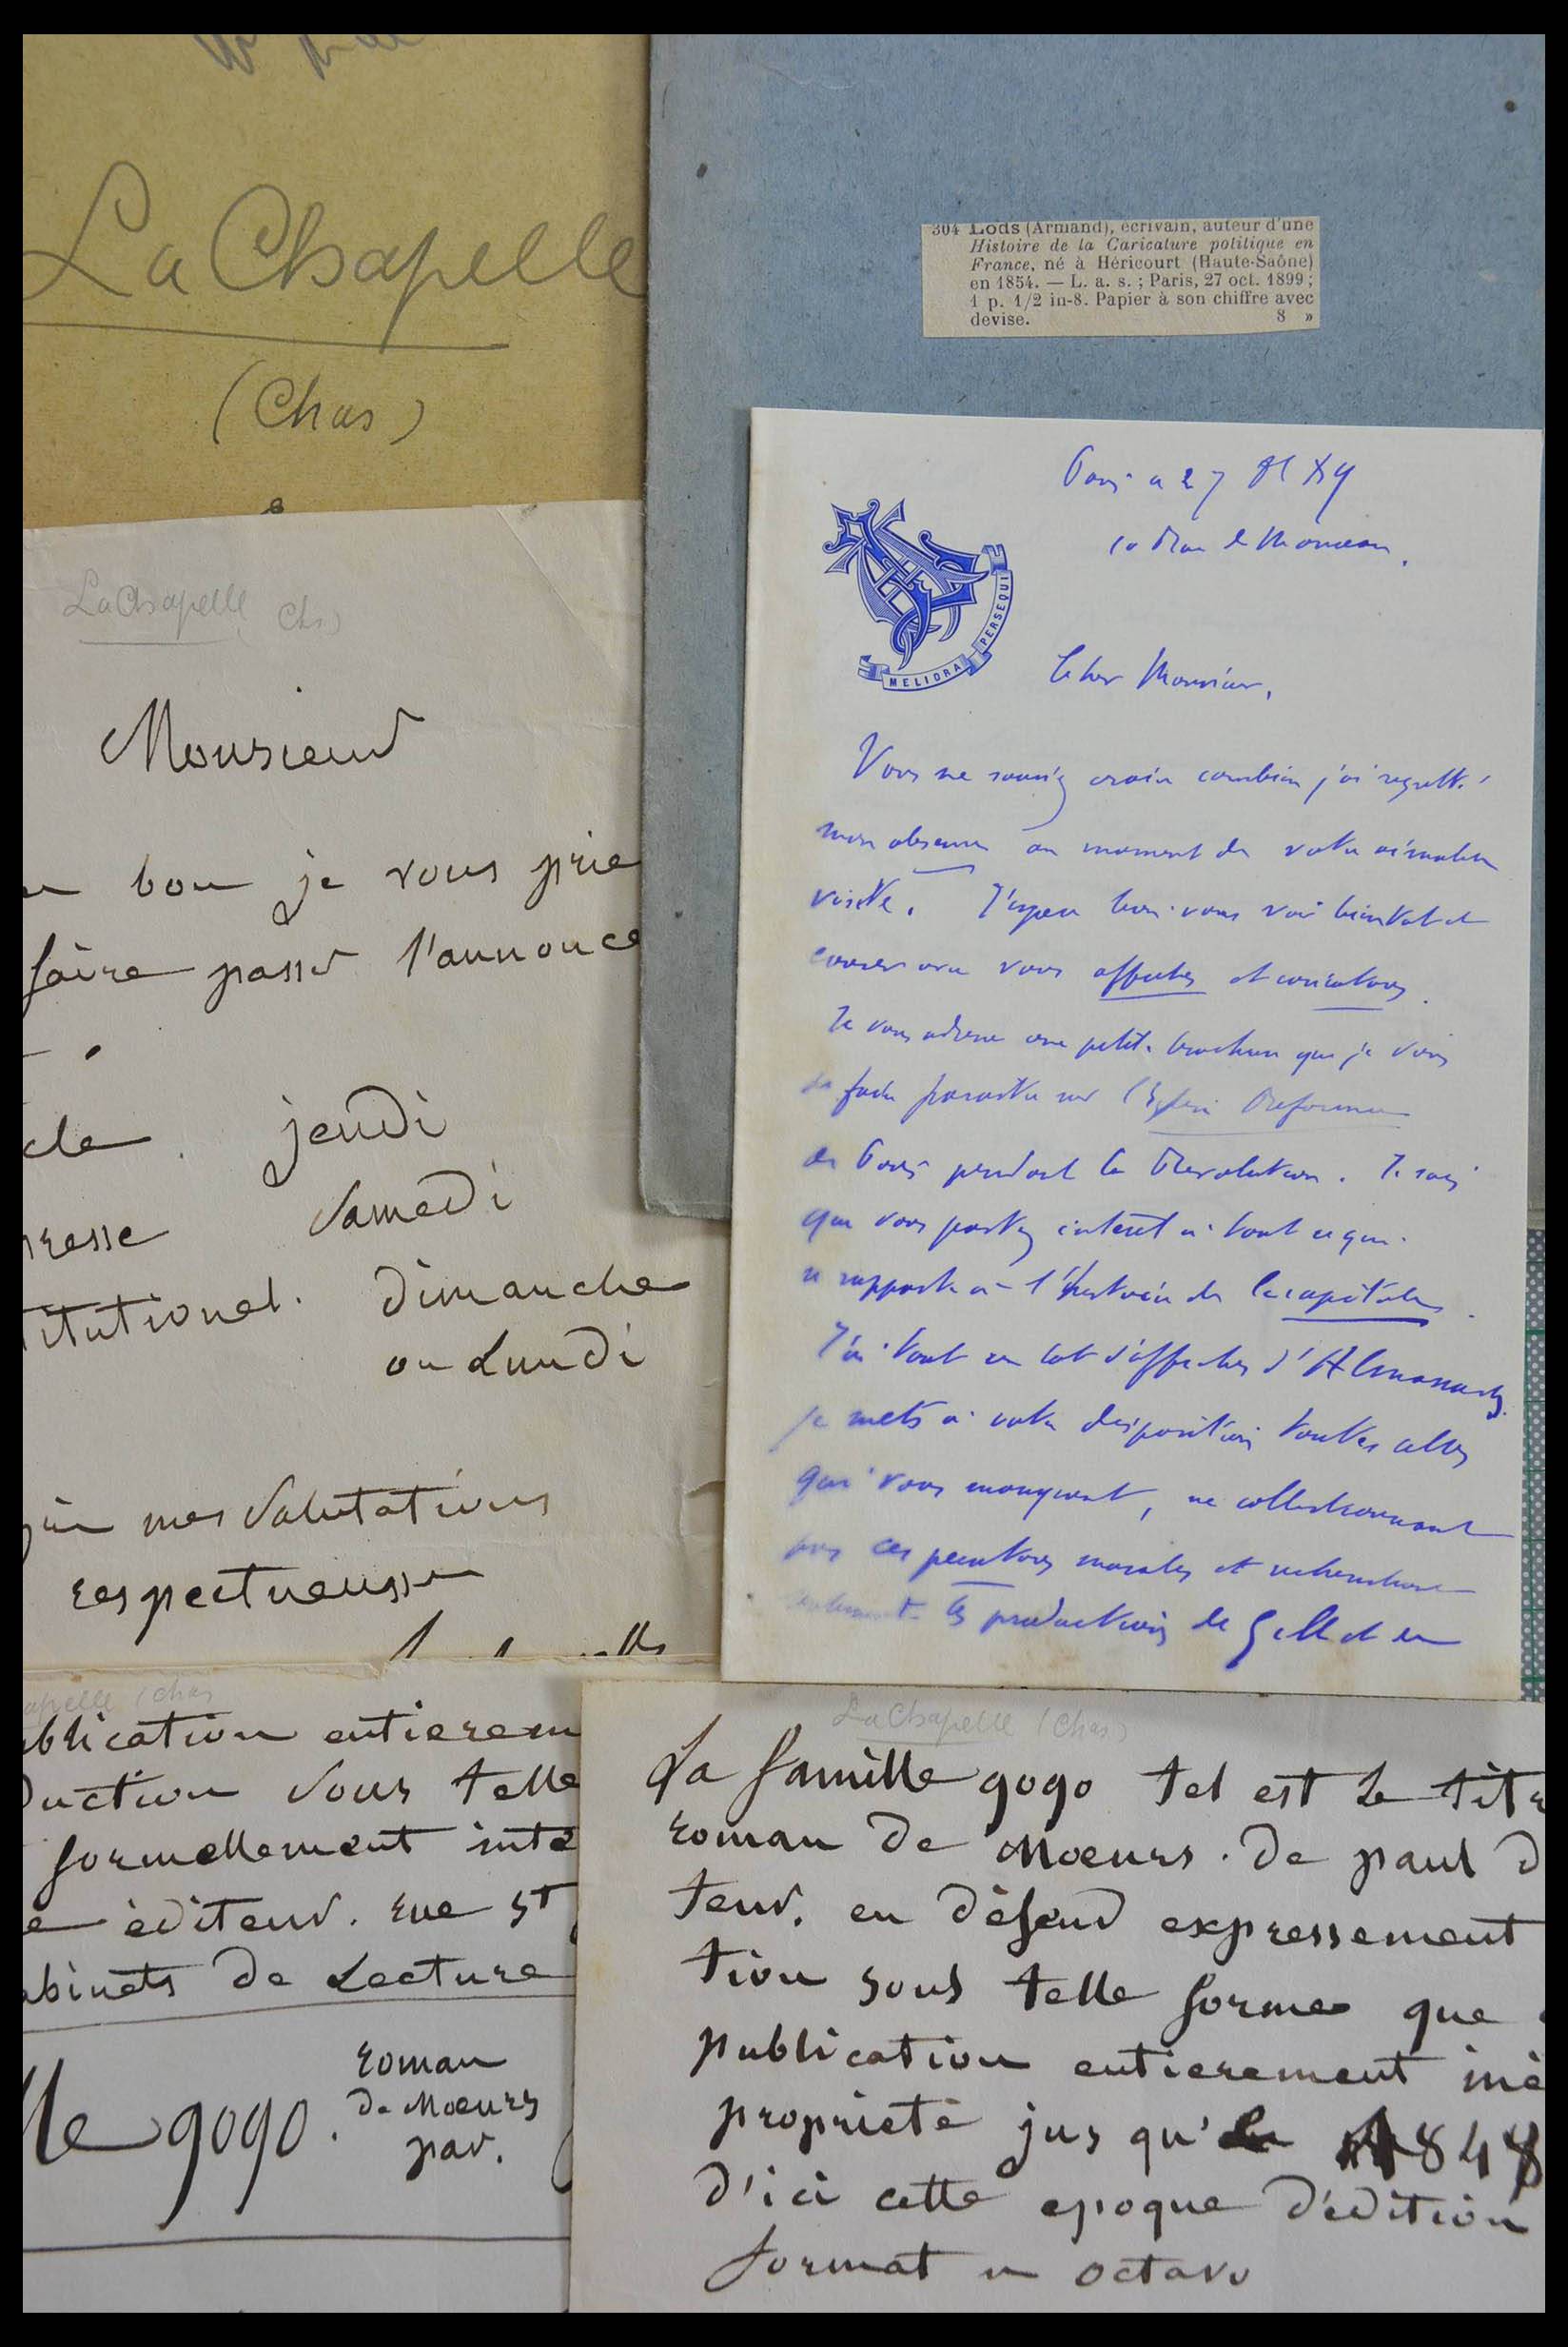 La Chapelle
(Chas)
304 Lods (Armand), écrivain, auteur d'une
Histoire de la Caricature politique en
France, né à Héricourt (Haute-Saône)
en 1854. — L. a. s. ; Paris, 27 oct. 1899 ;
1 p. 1/2 in-8. Papier à son chiffre avec
devise. 8 »
La Chapelle Chs)
Monsieur
bon je vous prie
faire passer l'annonce
cle . jeudi
resse samedi
titutionel. dimanche
ou Lundi
mes Salutations
respectueusse
MELIORA PERSEQUI
27
Cher Monsieur,
Vous ne sauriez croire combien j'ai regretté
mon absence au moment de votre aimable
visite. J'espère bien vous voir bientôt et
vous affiches et
Je vous adresse une petite brochure que je viens
de faire paraitre sur l'Eglise Reformée
de Paris pendant la Revolution. Je sais
que vous portez intéret à tout ce qui
se rapporte à l'histoire de la capitale.
J'ai tout un lot d'affiches d'Almanachs
je mets à votre disposition toutes celles
qui vous manquent, ne collectionnant
pas ces peintures murales et
les productions de Gill et
apelle (Chas
ublication entierem
duction sous telle
formellement inte
e éditeur. rue St
abinets de Lecture
lle gogo. roman
de Moeurs
par.
La Chapelle (Chas)
La famille gogo tel est le titr
roman de Moeurs. de paul d
teur. en défend expressement
tion sous telle forme que
publication entierement iné
propriété jusqu' 1848
d'ici cette epoque d'édition
format in octavo